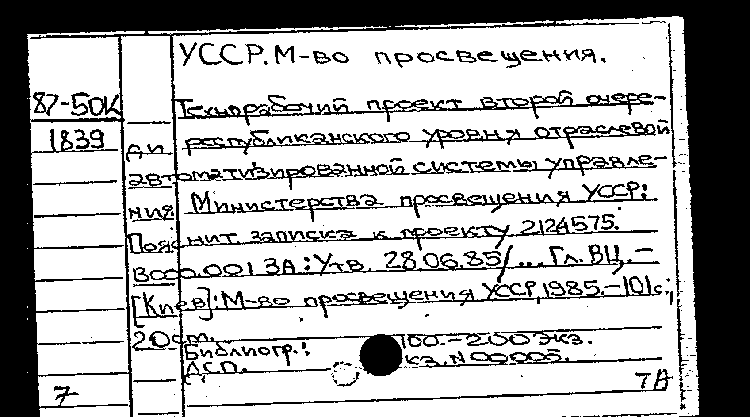 УССР. М-во просвещения.
87-50К
1839
Технорабочий проект второй очере-
ди республиканского уровня отраслевой
автоматизированной системы управле-
ния Министерства просвещения УССР:
Пояснит записка к проекту 2124575.
001 ЗА: Утв. 28.06.85/... Гл. ВЦ. –
[Киев]: М-во просвещения УССР, 1985. – 101 с.;
20 см.
Библиогр.: 100. – 200 экз.
ДСП. кз. N 00005.
7
7А